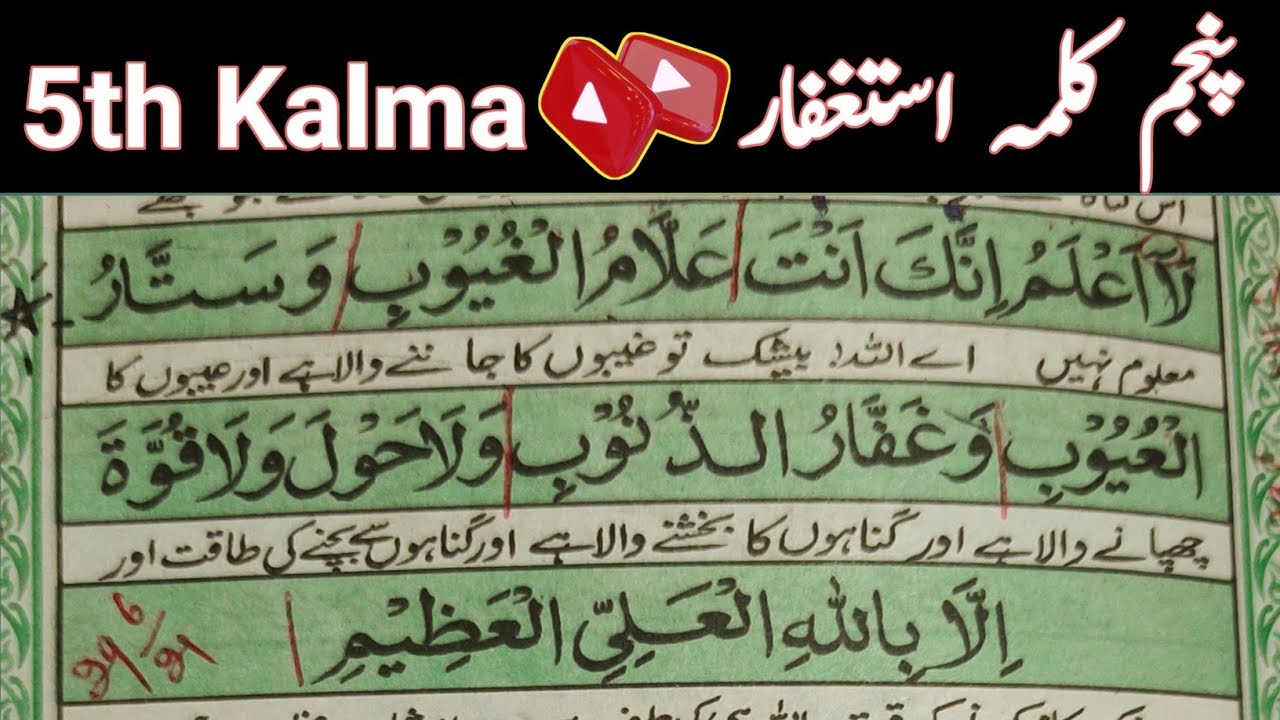 5th Kalma پنجم کلمہ استغفار
لَآ اَعْلَمُ اِنَّكَ اَنْتَ عَلَّامُ الْغُيُوْبِ وَسَتَّارُ
معلوم نہیں اے اللہ! بیشک تو غیبوں کا جاننے والا ہے اور عیبوں کا
الْعُيُوْبِ وَغَفَّارُ الذُّنُوْبِ وَلَا حَوْلَ وَلَا قُوَّةَ
چھپانے والا ہے اور گناہوں کا بخشنے والا ہے اور گناہوں سے بچنے کی طاقت اور
اِلَّا بِاللهِ الْعَلِيِّ الْعَظِيْمِ